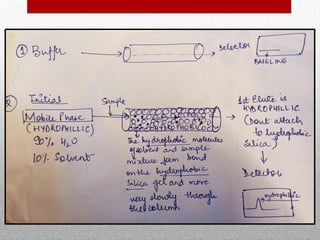 ① Buffer
Detector
BASELINE
② Initial
Mobile Phase
(HYDROPHILLIC)
90% H₂O
10% Solvent
Sample
HYDROPHOBIC
The hydrophobic molecules
of solvent and sample
mixture form bond
on the hydrophobic
Silica gel and move
very slowly through
the column
1st Elute is
HYDROPHILLIC
(Dont attach
to hydrophobic
Silica)
Detector
Hydrophillic